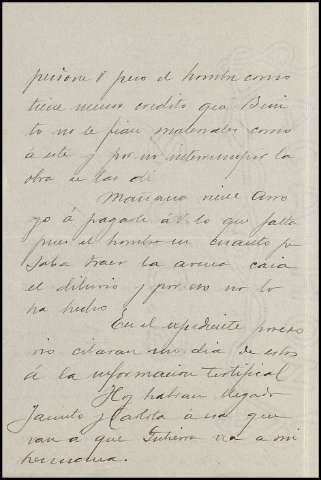 persone V pero el hombre como
tiene menos credito que Beni
to no le fian materiales como
á este y por no interrumpir la
obra se las di.
Mañana viene Arro
yo á pagarle á V. lo que falta
pues el hombre en cuanto pe
saba traer la arena caia
el diluvio y por eso no lo
ha hecho.
En el expediente poseso
rio citaran un dia de estos
de la informacion testifical
Hoy habran llegado
Jacinto y Carlota á esa que
van a que Gutierrez vea a mi
hermana.